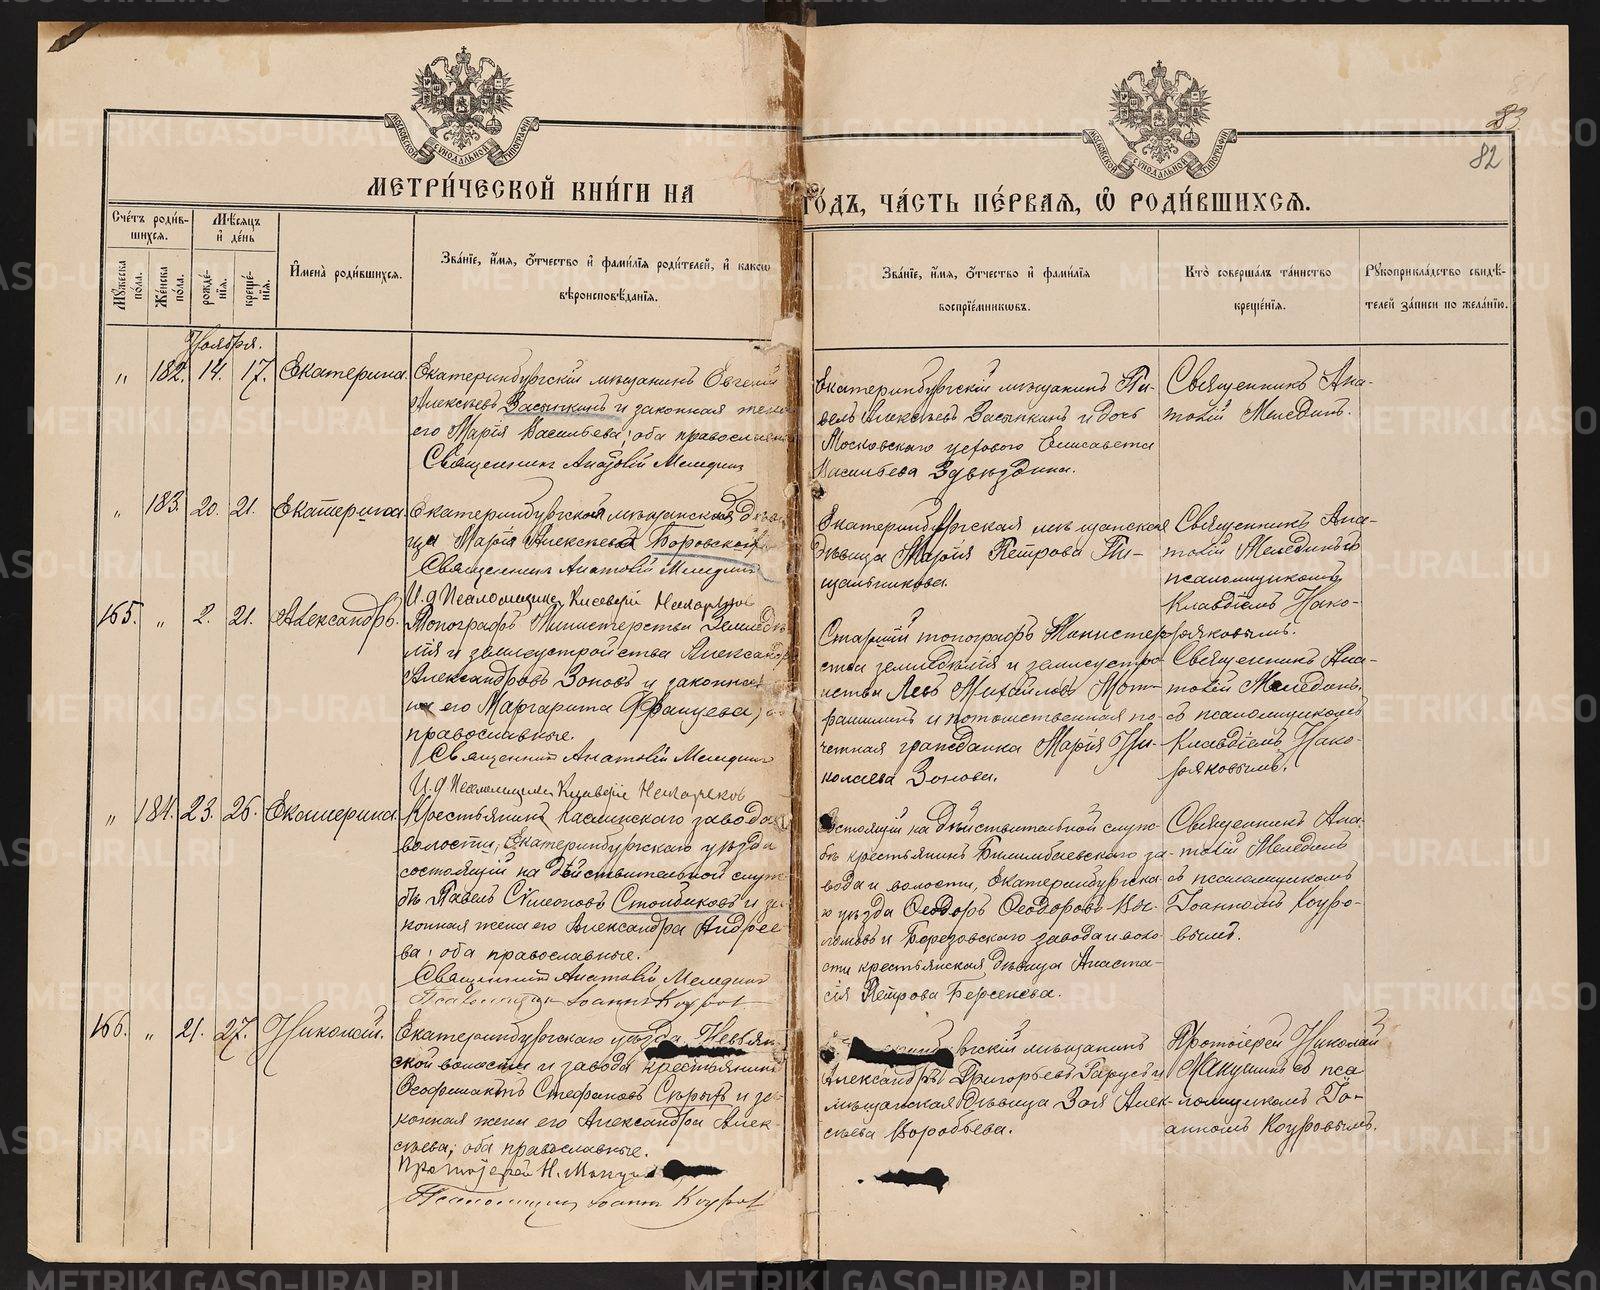 МОСКОВСКОЙ СѴНОДАЛЬНОЙ ТИПОГРАФІИ
МОСКОВСКОЙ СѴНОДАЛЬНОЙ ТИПОГРАФІИ
83
82
МЕТРИ́ЧЕСКОЙ КНИ́ГИ НА
ГО́ДЪ, ЧА́СТЬ ПЕ́РВАѦ, Ѡ҆ РОДИ́ВШИХСѦ.
Сче́тъ роди́в-
шихсѧ.
Мѣ́сѧцъ
и҆ де́нь
Мꙋ́жеска по́ла.
Же́нска по́ла.
рожде́-
нїѧ.
креще́-
нїѧ.
И҆мена̀ роди́вшихсѧ.
Зва́нїе, и҆́мѧ, ѻ҆́тчество и҆ фами́лїѧ роди́телей, и҆ какогѡ
вѣроисповѣ́данїѧ.
Зва́нїе, и҆́мѧ, ѻ҆́тчество и҆ фами́лїѧ
воспрїе́мникѡвъ.
Кто̀ соверша́лъ та́инство
креще́нїѧ.
Рꙋкоприкла́дство свидѣ́-
телей за́писи по жела́нїю.
Ноября.
" 182. 14. 17. Екатерина.
Екатеринбургскій мѣщанинъ Евгеній
Алексѣевъ Засыпкинъ и законная жена
его Марія Васильева; оба православные
Священникъ Анатолій Мелединъ
Екатеринбургскій мѣщанинъ Па-
велъ Алексѣевъ Засыпкинъ и дочь
Московскаго Елисавета
Васильева
Священникъ Ана-
толій Мелединъ.
" 183. 20. 21. Екатерина.
Екатеринбургская мѣщанская дѣви-
ца Марія Алексѣева Боровская
Священникъ Анатолій Мелединъ
И. д. Псаломщика
Екатеринбургская мѣщанская
дѣвица Марія Петрова Пи-
щальникова.
Священникъ Ана-
толій Мелединъ съ
псаломщикомъ
Клавдіемъ Нако-
ряковымъ.
165. " 2. 21. Александръ.
Топографъ Министерства Земледѣ-
лія и землеустройства Александръ
Александровъ Зоновъ и законная
его Маргарита Францева,
православные.
Священникъ Анатолій Меледин
И. д. Псаломщика Накоряков
Старшій топографъ Министер-
ства земледѣлія и землеустро-
иства Левъ Михайловъ
и потомственная по-
четная гражданка Марія Ни-
колаева Зонова.
Священникъ Ана-
толій Мелединъ,
съ псаломщикомъ
Клавдіемъ Нако-
ряковымъ.
" 184. 23. 26. Екатерина.
Крестьянинъ Каслинскаго завода
волости, Екатеринбургскаго уѣзда
состоящій на дѣйствительной служ-
бѣ Павелъ Сѵмеоновъ Столбиковъ и за-
конная жена его Александра Андрее-
ва; оба православные.
Священникъ Анатолій Меледин
Псаломщикъ Іоаннъ Коуров
Состоящій на дѣйствительной служ-
бѣ крестьянинъ Билимбаевскаго за-
вода и волости, Екатеринбургска-
го уѣзда Ѳеодоръ Ѳеодоровъ
и Березовскаго завода и воло-
сти крестьянская дѣвица Анаста-
сія Петрова Берсенева.
Священникъ Ана-
толій Мелединъ
съ псаломщикомъ
Іоанномъ Коуро-
вымъ.
166. " 21. 27. Николай.
Екатеринбургскаго уѣзда Невьян-
ской волости и завода крестьянинъ
Ѳеофилактъ Стефановъ Сѣрыхъ и за-
конная жена его Александра Алек-
сѣева; оба православные.
Протоіерей Н.
Псаломщикъ Іоаннъ Коуров
мѣщанинъ
Александръ Григорьевъ и
мѣщанская дѣвица Зоя Алек-
сѣева Воробьева.
Протоіерей Николай
съ пса-
ломщикомъ Іо-
анномъ Коуровымъ.
METRIKI.GASO-URAL.RU